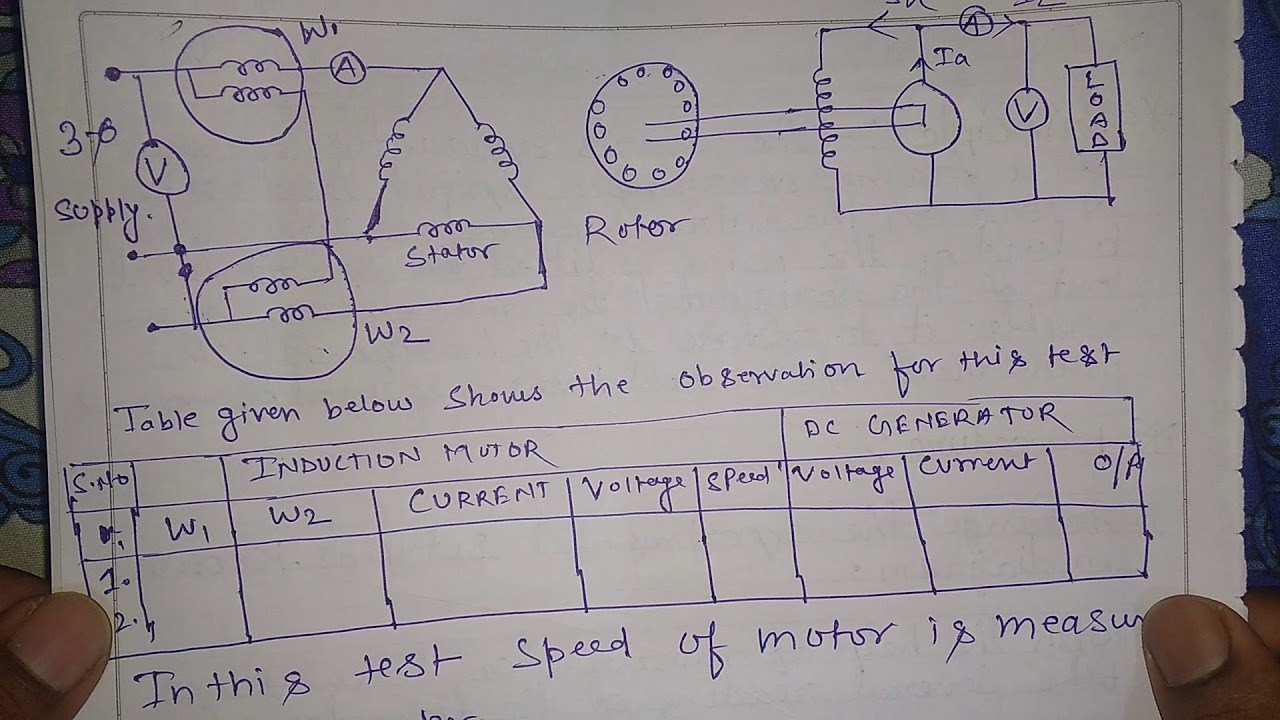 W1
A
A
Ia
3-φ
V
V
LOAD
supply.
Rotor
Stator
W2
Table given below shows the observation for this test
INDUCTION MOTOR DC GENERATOR
S.No W1 W2 CURRENT Voltage speed Voltage current O/P
1.
2.
In this test speed of motor is measur